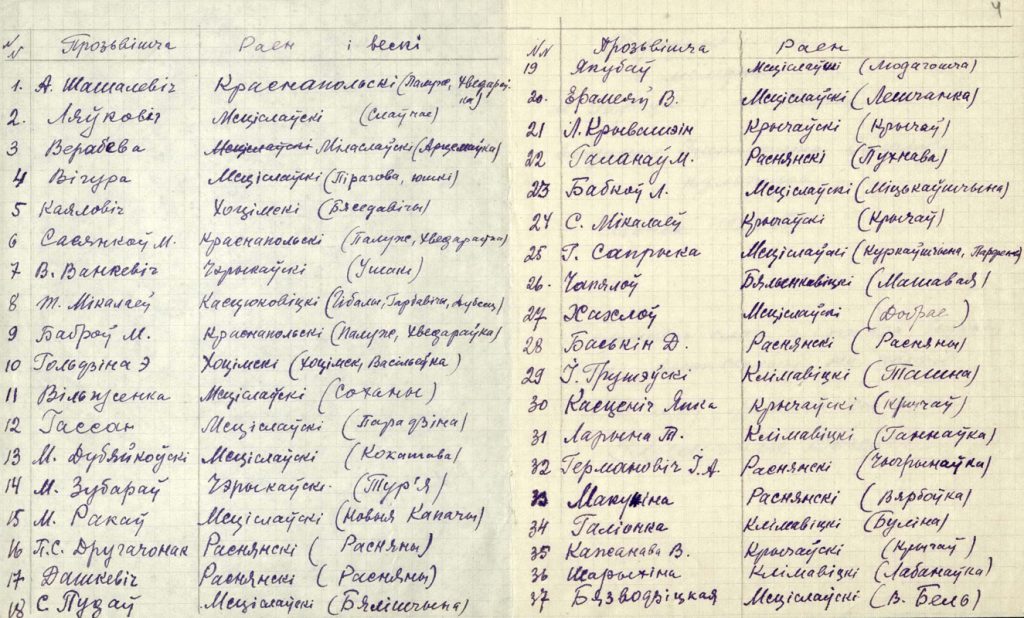 4
№№ Прозьвішча Раен і вескі
1. А. Шашалевіч Краснапольскі (Палуж, Хведараў-
ка)
2. Ляўковіч Мсціслаўскі (Слаўнае)
3 Верабева Міласлаўскі (Арцемаўка)
4 Вігура Мсціслаўскі (Пірагова, юшкі)
5 Каяловіч Хоцімскі (Бяседавічы)
6 Савянкоў М. Краснапольскі (Палуж, Хведараўка)
7 В. Ванкевіч Чэрыкаўскі (Ушакі)
8 Т. Мікалаеў Касцюковіцкі (Гарбавічы,
9 Баброў М. Краснапольскі (Палуж, Хведараўка)
10 Гольдзіна Э Хоцімскі (Хоцімск, Васільеўка)
11 Вільженка Мсціслаўскі (Соханы)
12 Гассан Мсціслаўскі (Парадзіна)
13 М. Дубяйкоўскі Мсціслаўскі (Кокатава)
14 М. Зубараў Чэрыкаўскі. (Тур'я)
15 М. Ракаў Мсціслаўскі (Новыя Капачы)
16 П.С. Другачонак Раснянскі (Расняны)
17 Дашкевіч Раснянскі (Расняны)
18 С. Пудаў Мсціслаўскі (Бялішчына)
№№ Прозьвішча Раен
19 Якубаў Мсціслаўскі (Людагошча)
20. Ерамееў В. Мсціслаўскі (Лешчанка)
21 Л. Крывашэін Крычаўскі (Крычаў)
22 Галанаў М. Раснянскі (Пухнава)
23 Бабкоў Л. Мсціслаўскі (Міцькаўшчына)
24 С. Мікалаеў Крычаўскі (Крычаў)
25 Г. Сапрыка Мсціслаўскі (Куркаўшчына,
26. Чапялоў Бялынкавіцкі (Машавая)
27 Хахлоў Мсціслаўскі (Добрае)
28 Баськін Д. Раснянскі (Расняны)
29 І. Грушэўскі Клімавіцкі (Ташна)
30 Касценіч Янка Крычаўскі (Крычаў)
31 Ларына Т. Клімавіцкі (Ганнаўка)
32 Германовіч І.А. Раснянскі
33 Макуніна Раснянскі (Вярбоўка)
34 Галіонка Клімавіцкі (Буліна)
35 Кажанава В. Крычаўскі (Крычаў)
36 Шарыхіна Клімавіцкі (Лабанаўка)
37 Бязводзіцкая Мсціслаўскі (В. Бель)